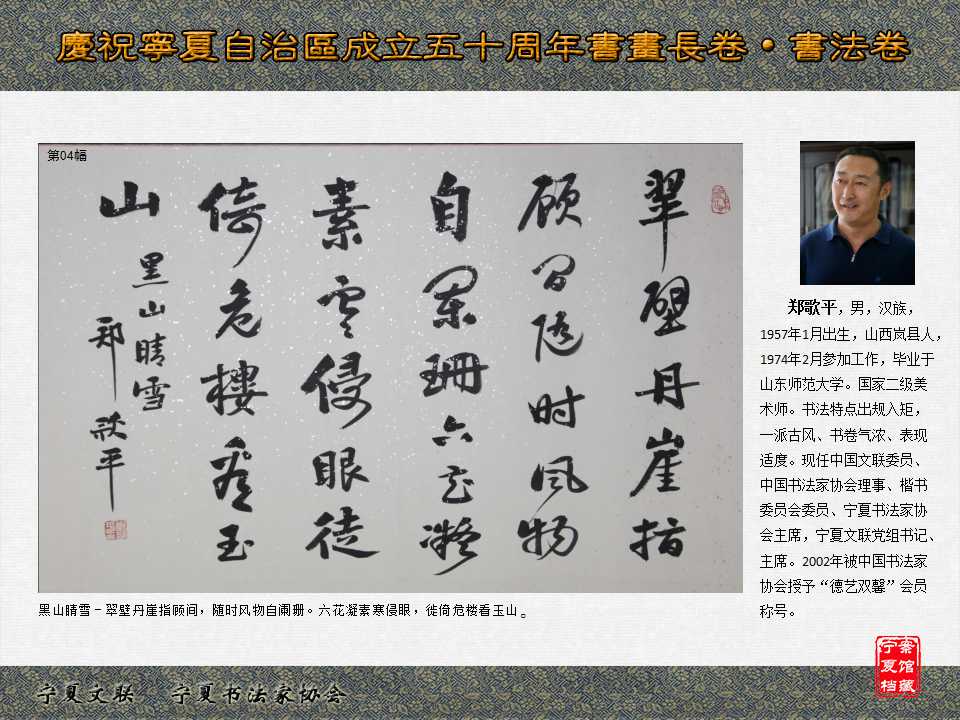 慶祝寧夏自治區成立五十周年書畫長卷•書法卷
第04幅
翠壁丹崖指
顾间随时风物
自阑珊六花凝
素寒侵眼徙
倚危樓看玉
山
黑山晴雪
郑歌平
黑山晴雪－翠壁丹崖指顾间，随时风物自阑珊。六花凝素寒侵眼，徙倚危楼看玉山。
郑歌平，男，汉族，
1957年1月出生，山西岚县人，
1974年2月参加工作，毕业于
山东师范大学。国家二级美
术师。书法特点出规入矩，
一派古风、书卷气浓、表现
适度。现任中国文联委员、
中国书法家协会理事、楷书
委员会委员、宁夏书法家协
会主席，宁夏文联党组书记、
主席。2002年被中国书法家
协会授予“德艺双馨”会员
称号。
宁夏文联　宁夏书法家协会
宁夏档
案馆藏